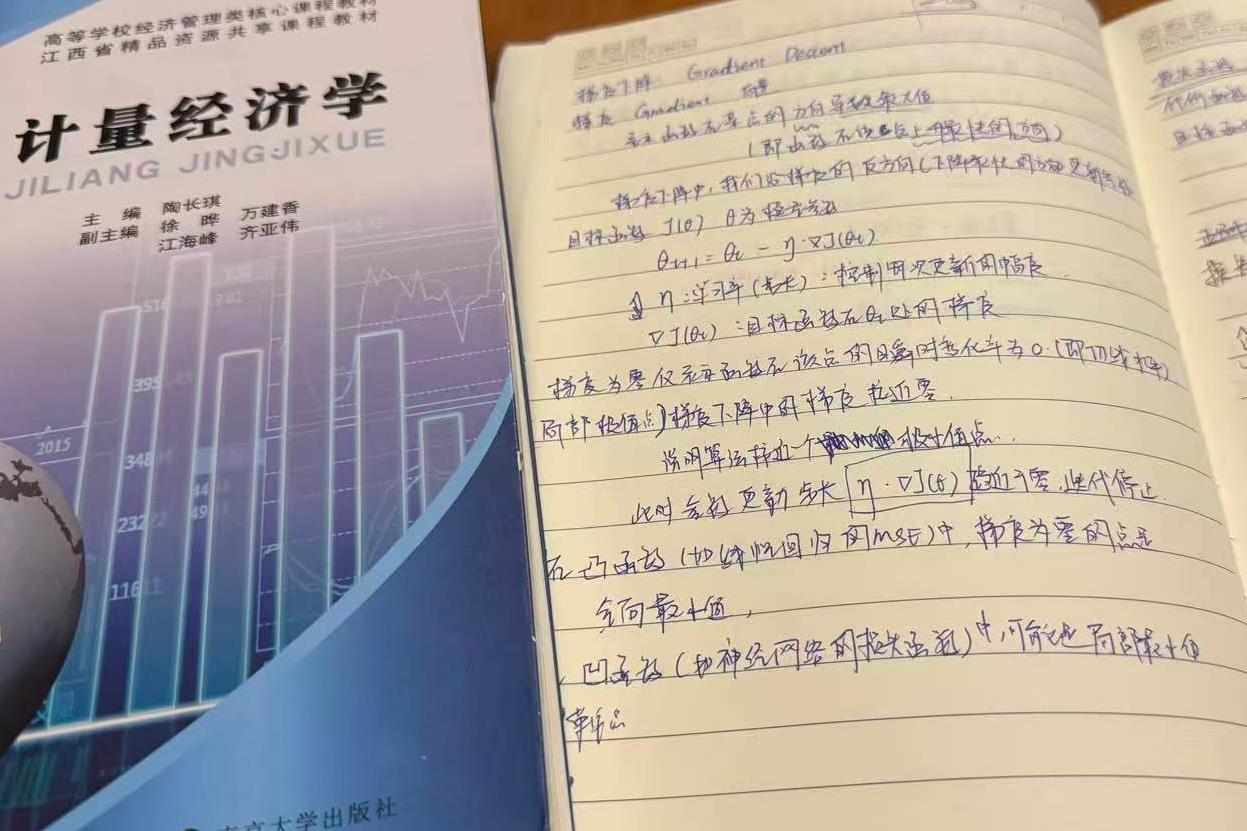 高等学校经济管理类核心课程教材
江西省精品资源共享课程教材
计量经济学
JILIANG JINGJIXUE
主 编 陶长琪
副主编 徐 晔 万建香
江海峰 齐亚伟
516
395
2015
348
232
116
南京大学出版社
梯度下降 Gradient Descent
梯度 Gradient 向量
表示函数在某点的方向导数最大值
(即函数在该点上升最快的方向)
梯度下降中,我们沿梯度的反方向(下降最快的方向)更新参数
目标函数 J(θ) θ为模型参数
θt+1 = θt − η·∇J(θt)
η:学习率(步长):控制每次更新的幅度
∇J(θt):目标函数在θt处的梯度
梯度为零仅表示函数在该点的瞬时变化率为0.(即
局部极值点)梯度下降中的梯度接近零.
说明算法接近一个极小值点.
此时参数更新步长 η·∇J(θ) 趋近于零,迭代停止.
在凸函数(如线性回归的MSE)中,梯度为零的点是
全局最小值,
凹函数(如神经网络的损失函数)中,可能是局部最小值
鞍点